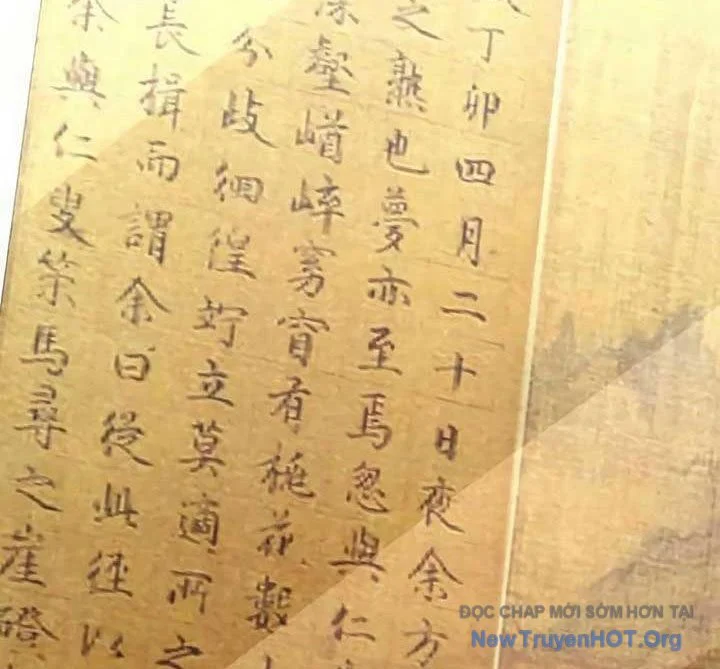 丁卯四月二十日夜余方
之熟也夢亦至焉忽與仁
深壑崷崒窈窅有桃花數
分歧徊徨竚立莫適所之
長揖而謂余曰從此徑以
余與仁叟策馬尋之崖磴
ĐỌC CHAP MỚI SỚM HƠN TẠI
NewTruyenHOT.Org